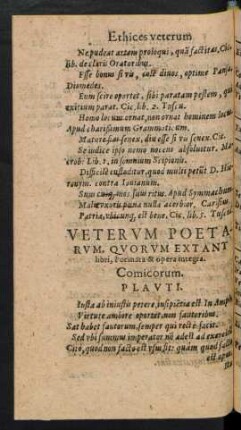 Ethices veterum
Ne pudeat artem proloqui, quã factites, Cic.
lib. de claris Oratoribus.
Esse bonus si vis, cole divos, optime Pansa
Diomedes.
Eum scire oportet, sibi paratam pestem,
exitium parat. Cic. lib. 2. Tuscu.
Homo locum ornat, non ornat hominem locus.
Apud charisimum Grammati. em.
Mature fias senex, diu esse si vis senex. Cic.
Se iudice ipso nemo nocens absolvitur. Ma
crob: Lib. 1. in somnium Scipionis.
Difficile custoditur, quod multi petũt D. Hie
ronym. contra Iovianum.
Apud Symmachum
nulla acerbior.
Patria, est, ubicunq, est bene. Cic. lib. 5. Tuscu.
VETERVM POETA-
RVM, QVORVM EXTANT
libri, Poemata & opera integra.
Comicorum.
PLAVTI.
Iusta ab iniustis petere, insipiẽtia est. In Amph.
Virtute ambire oportet, non favitoribus.
Sat habet favitorum, semper qui rectè facit.
Sed ubi summus imperator nõ adest ad exercitũ
Citò, quod non facto est usus fit: quàm quod facto
est opus.